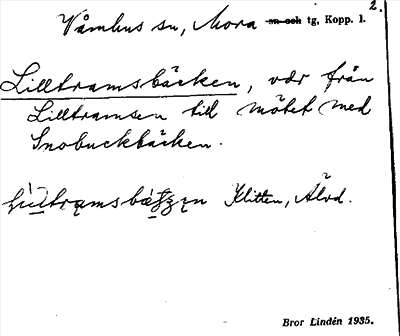 2.
Våmhus sn, Mora sn och tg, Kopp. l.
Lilltramsbäcken, vdr från
Lilltramsen till mötet med
Snobuckbäcken.
Klitten, Älvd.
Bror Lindén 1935.